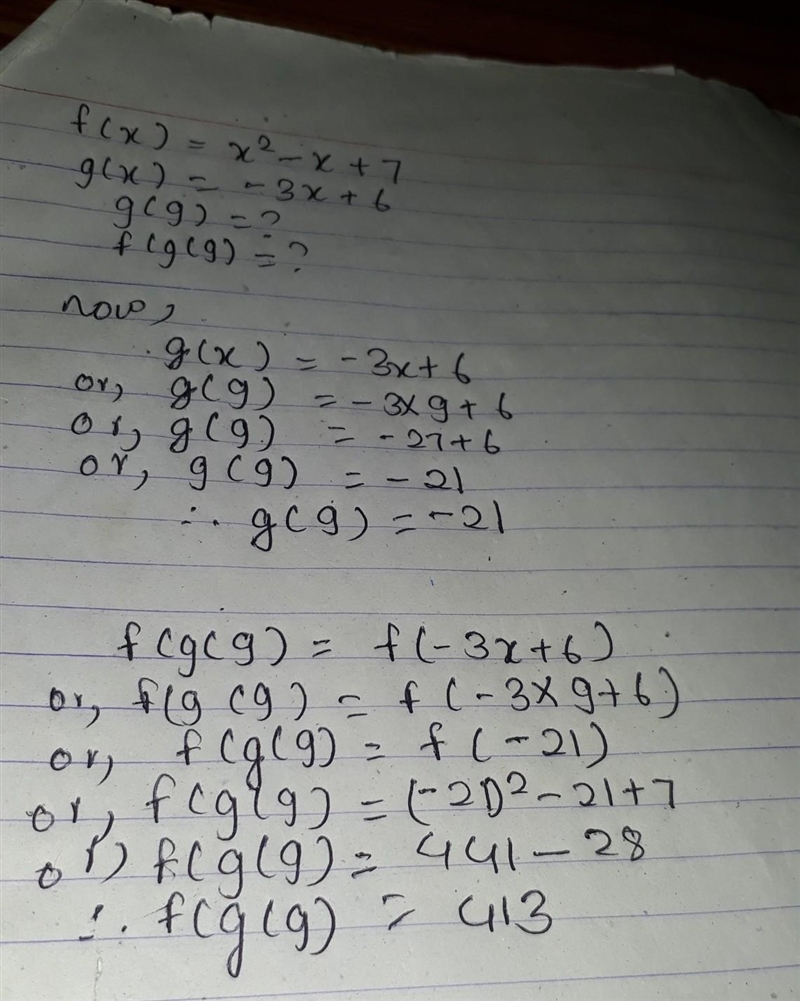 f(x) = x² - x + 7
g(x) = -3x + 6
g(9) = ?
f(g(9) = ?
now,
g(x) = -3x + 6
or, g(9) = -3×9 + 6
or, g(9) = -27 + 6
or, g(9) = -21
∴ g(9) = -21
f(g(9) = f(-3x + 6)
or, f(g(9) = f(-3×9+6)
or, f(g(9) = f(-21)
or, f(g(9) = (-21)² - 21 + 7
or, f(g(9) = 441 - 28
∴ f(g(9) = 413